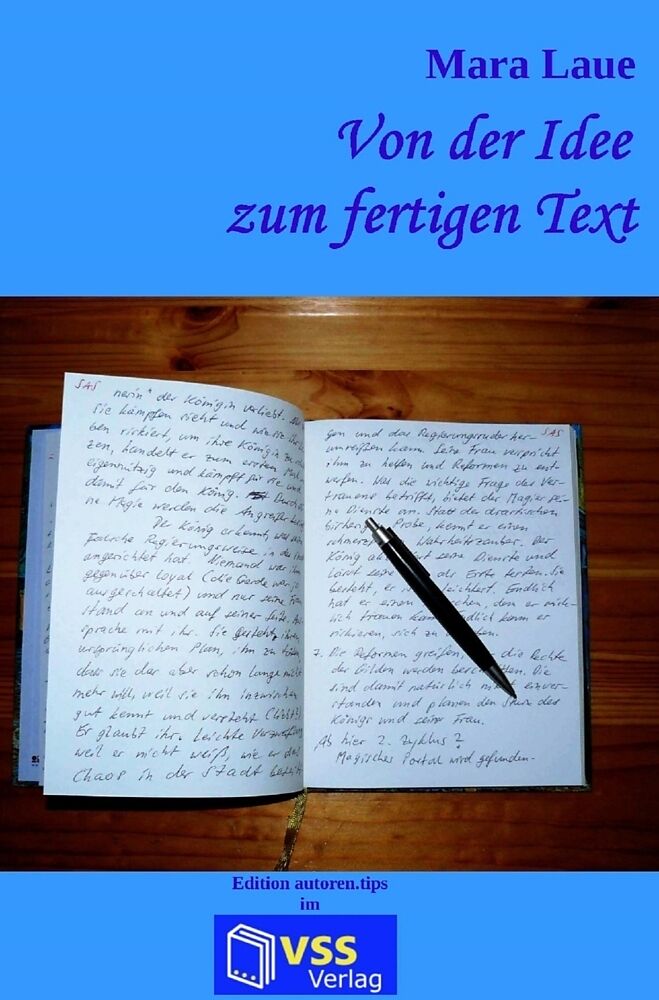 Mara Laue
Von der Idee
zum fertigen Text
SAS
nerin" der Königin verliebt.
Sie kämpfen sieht und wie sie
ben riskiert, um ihre Königin zu
zen, handelt er zum ersten Mal
eigennützig und kämpft für sie und
damit für den König. Durch
ne Magie werden die Angreifer
Der König erkennt, was
falsche Regierungsweise in der
angerichtet hat. Niemand war ihm
gegenüber loyal (die Garde war ja
ausgeschaltet) und nur seine Frau
stand an und auf seiner Seite.
sprache mit ihr. Sie gesteht ihren
ursprünglichen Plan, ihn zu töten,
dass sie das aber schon lange nicht
mehr will, weil sie ihn inzwischen
gut kennt und versteht (liebt?)
Er glaubt ihr. Leichte Verzweiflung
weil er nicht weiß, wie er das
Chaos in der Stadt
SAS
gen und das Regierungsruder her-
umreißen kann. Seine Frau verspricht
ihm zu helfen und Reformen zu ent-
werfen. Was die wichtige Frage des Ver-
trauens betrifft, bietet der Magier sei-
ne Dienste an. Statt der drastischen
Probe, kennt er einen
Wahrheitszauber. Der
König seine Dienste und
lässt seine als Erste testen. Sie
besteht, er ist erleichtert. Endlich
hat er einen Menschen, dem er wirk-
lich trauen kann. Endlich kann er
riskieren, sich zu
7. Die Reformen greifen, die Rechte
der Gilden werden beschnitten. Die
sind damit natürlich nicht einver-
standen und planen den Sturz des
Königs und seiner Frau.
Ab hier 2. Zyklus?
Magisches Portal wird gefunden-
Edition autoren.tips
im
VSS
Verlag